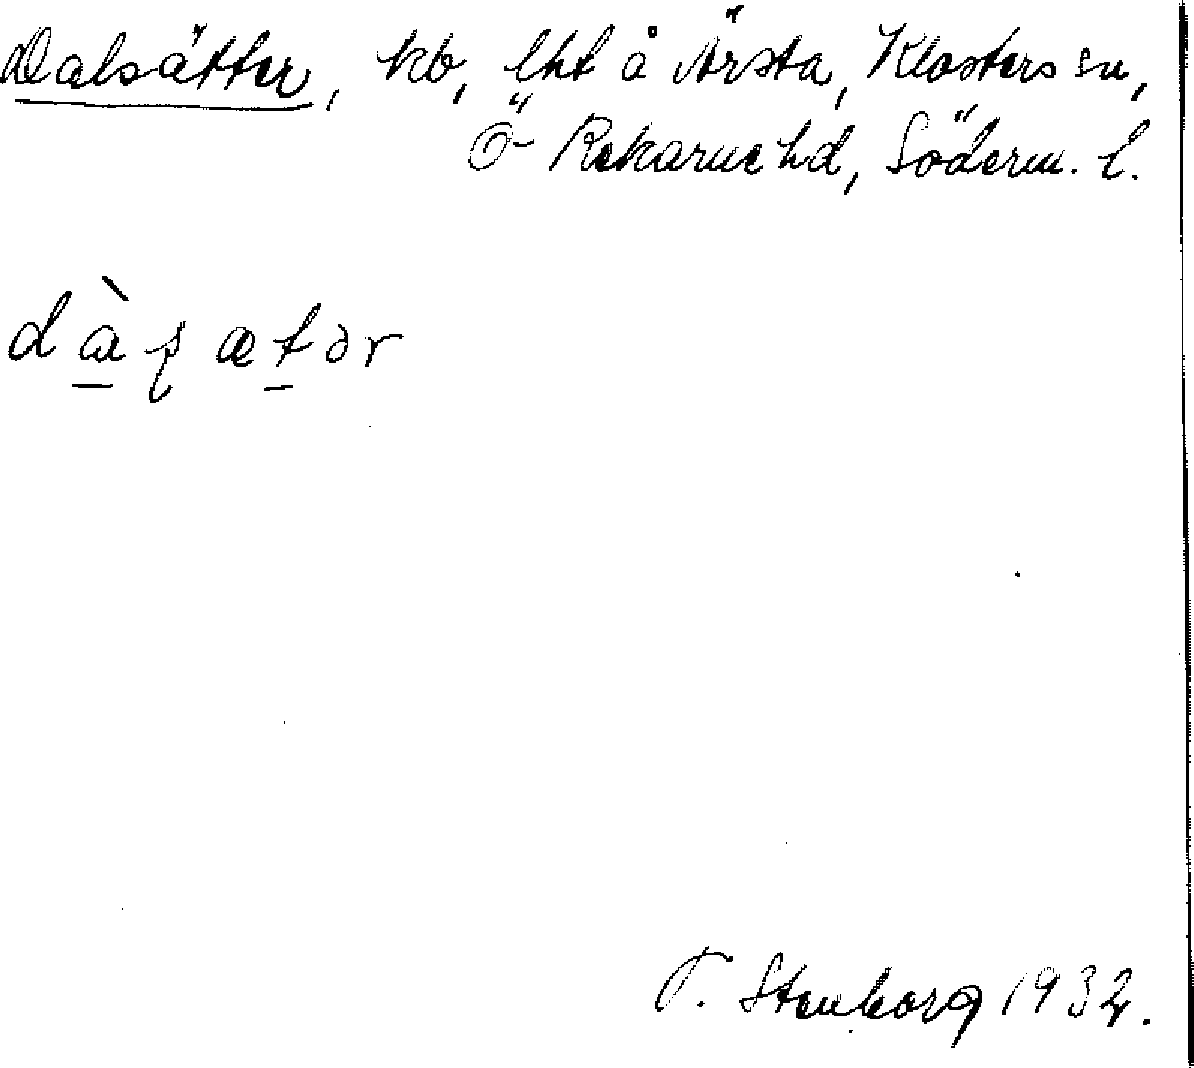 Dalsätter, kb, lht å Ärsta, Klosters sn,
Ö- Rekarne hd, Söderm. l.
dàʂætər
T. Stenborg 1932.